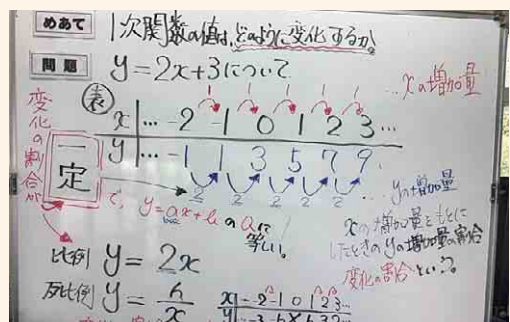 めあて 1次関数の値は、どのように変化するか。
問題 y=2x+3について
表 …xの増加量
1 1 1 1 1
x …-2 -1 0 1 2 3…
y …-1 1 3 5 7 9…
2 2 2 2 2 …yの増加量
変化の割合が
一定
で、y=ax+bのaに
等しい。
xの増加量をもとに
したときのyの増加量の割合
変化の割合という。
比例 y=2x
反比例 y=6/x
x …-2 -1 0 1 2 3…
y …-3 -6 × 6 3 2…